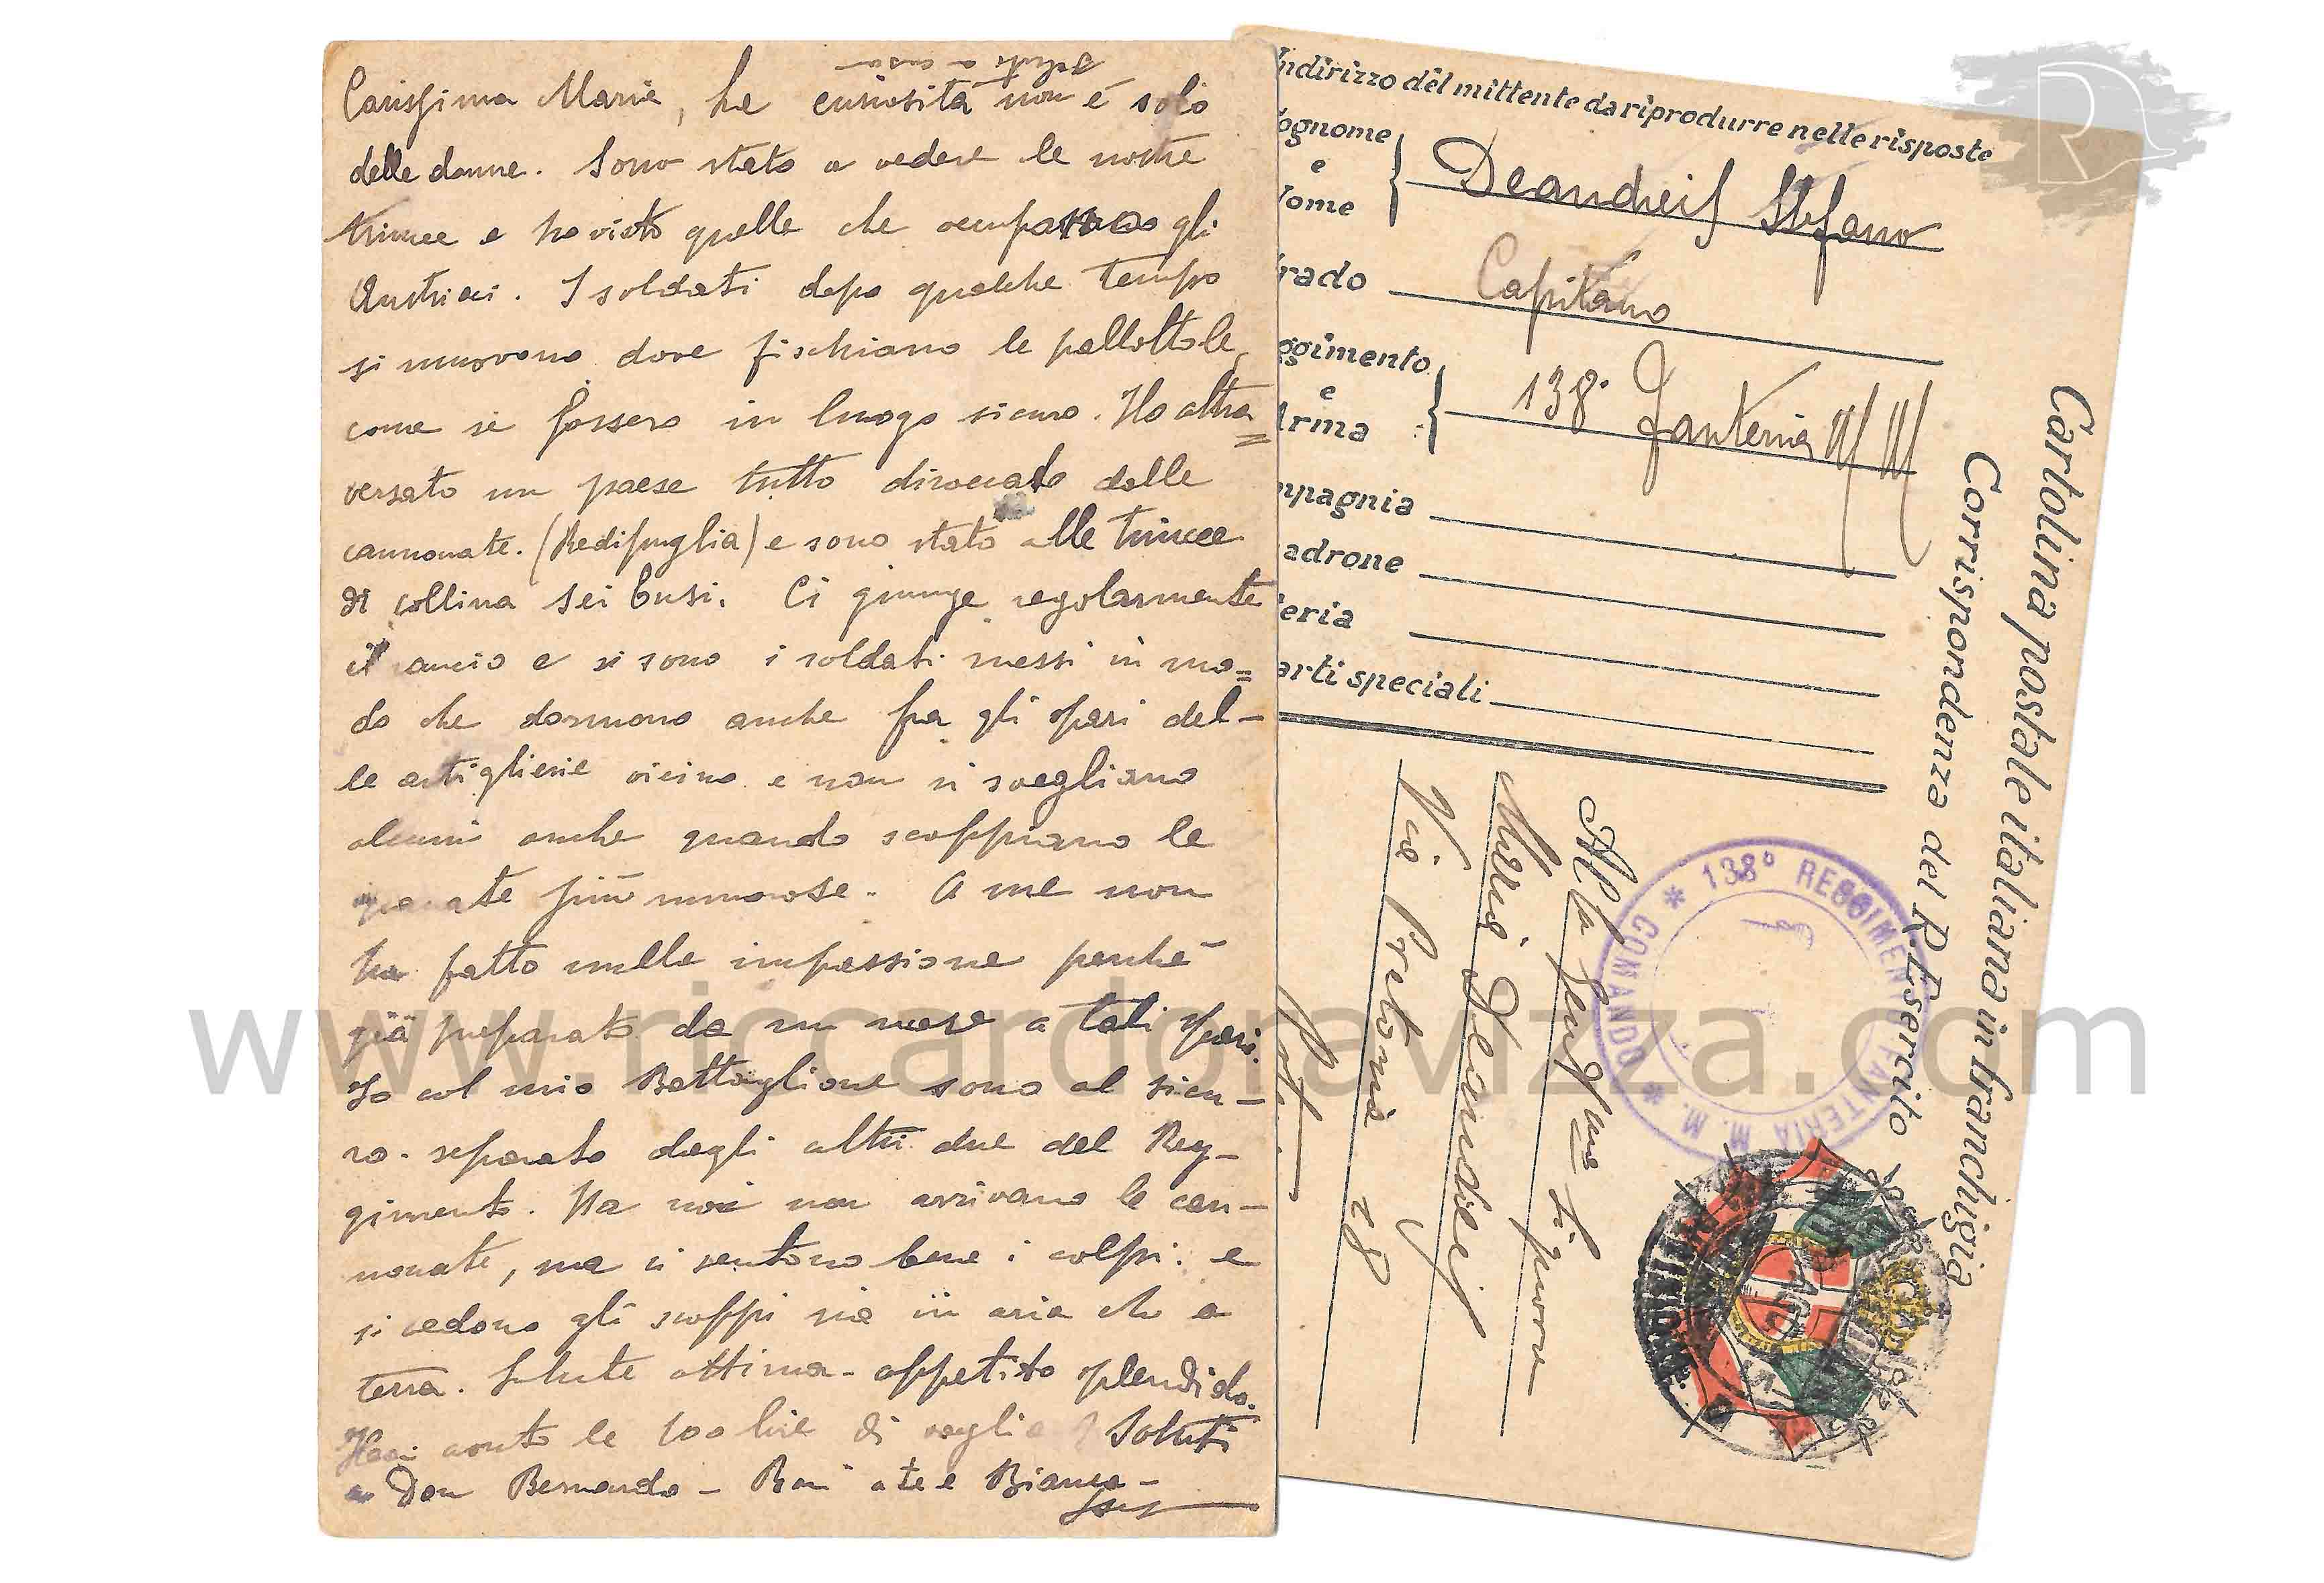 Saluti a casa
Carissima Maria, la curiosità non è solo
delle donne. Sono stato a vedere le nostre
trincee e ho visto quelle che occupavano gli
Austriaci. I soldati dopo qualche tempo
si muovono dove fischiano le pallottole,
come se fossero in luogo sicuro. Ho attra=
versato un paese tutto diroccato dalle
cannonate. (Redipuglia) e sono stato alle trincee
di collina sei busi. Ci giunge regolarmente
il rancio e si sono i soldati messi in mo=
do che dormono anche fra gli spari del-
le artiglierie vicino e non si svegliano
alcuni anche quando scoppiano le
granate più rumorose. A me non
ha fatto nulla impressione perché
già preparato da un mese a tali spari.
Io col mio Battaglione sono al sicu-
ro. separato dagli altri due del Reg-
gimento. Da noi non arrivano le can-
nonate, ma si sentono bene i colpi. e
si vedono gli scoppi sia in aria che a
terra. Salute ottima. appetito splendido.
Hai avuto le 100 lire di vaglia? Saluti
a Don Bernardo - Baci a te e Bianca -
Indirizzo del mittente da riprodurre nelle risposte
ognome
e
Nome
Deandreis Stefano
rado
Capitano
ggimento
e
Arma
138° Fanteria M M
mpagnia
adrone
teria
arti speciali
Cartolina postale italiana in franchigia
Corrispondenza del R. Esercito
Alla Gent.ma Signora
Maria Deandreis
Via Pretoria 28
* 138° REGGIMENTO FANTERIA M. M. * COMANDO
www.riccardoravizza.com
R